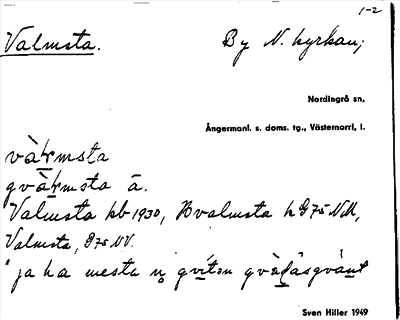 1-2
Valmsta. By N. kyrkan;
Nordingrå sn,
Ångermanl. s. doms. tg., Västernorrl. l.
vàḵmsta
gvàḵmsta ä.
Valmsta kb 1930, Hvalmsta h G75 NM,
Valmsta, G75 NV.
"ja ha mesta
Sven Hiller 1949